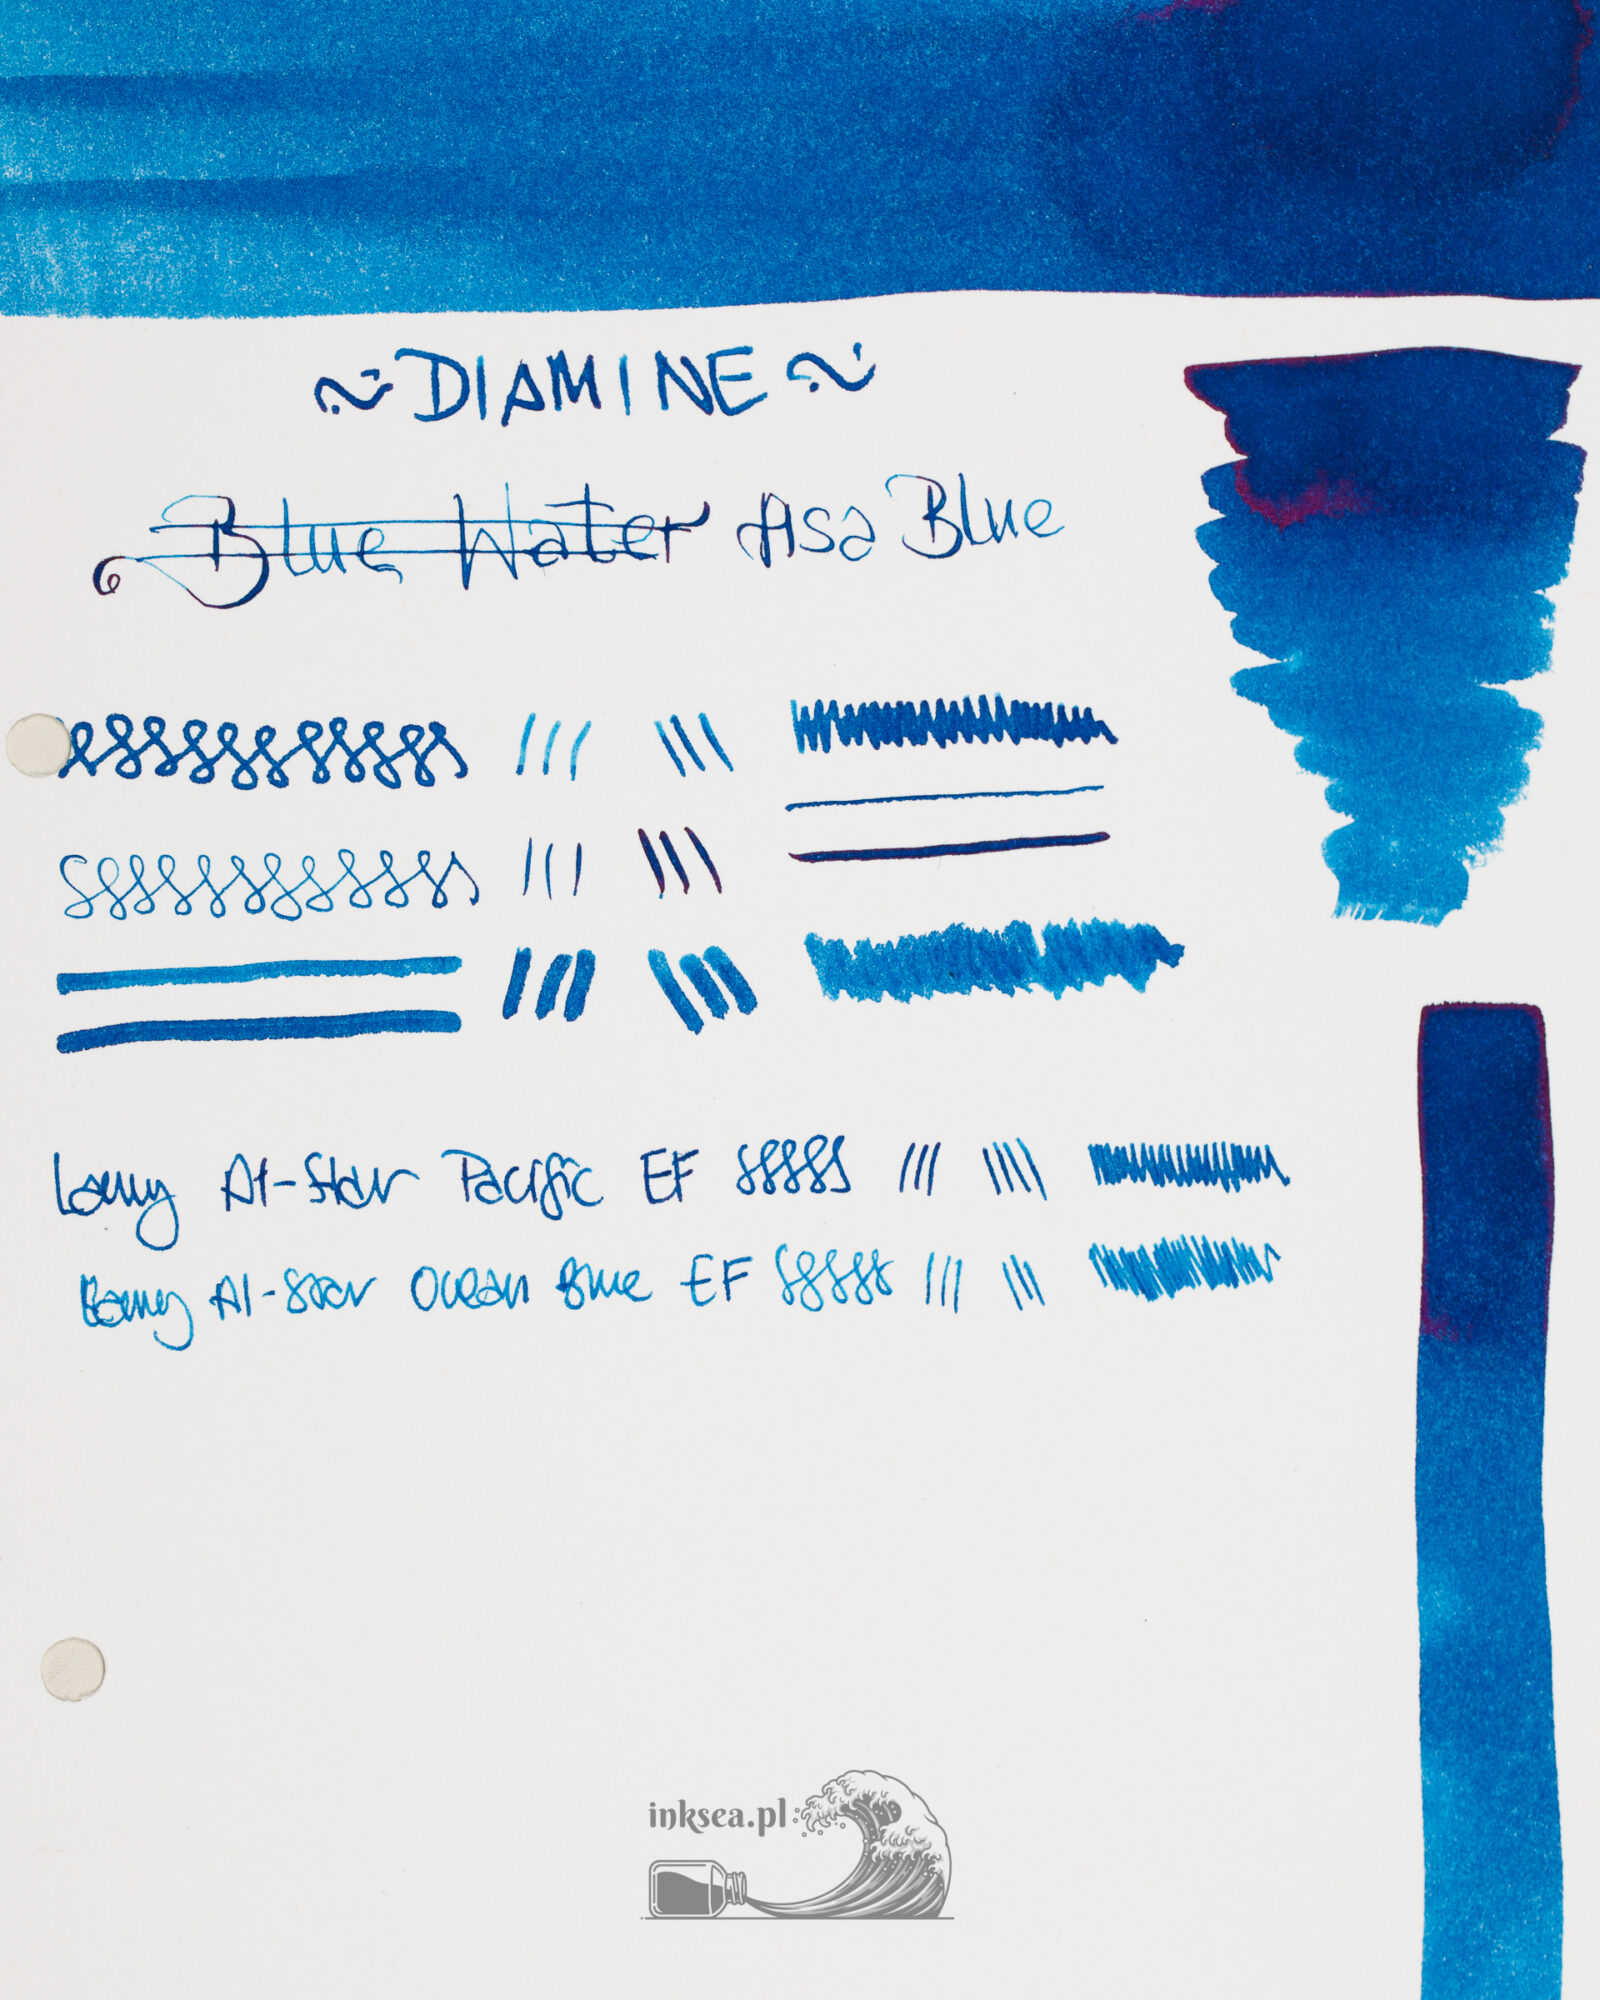 ~ DIAMINE ~
Blue Water Asa Blue
Lamy Al-Star Pacific EF
Lamy Al-Star Ocean Blue EF
inksea.pl